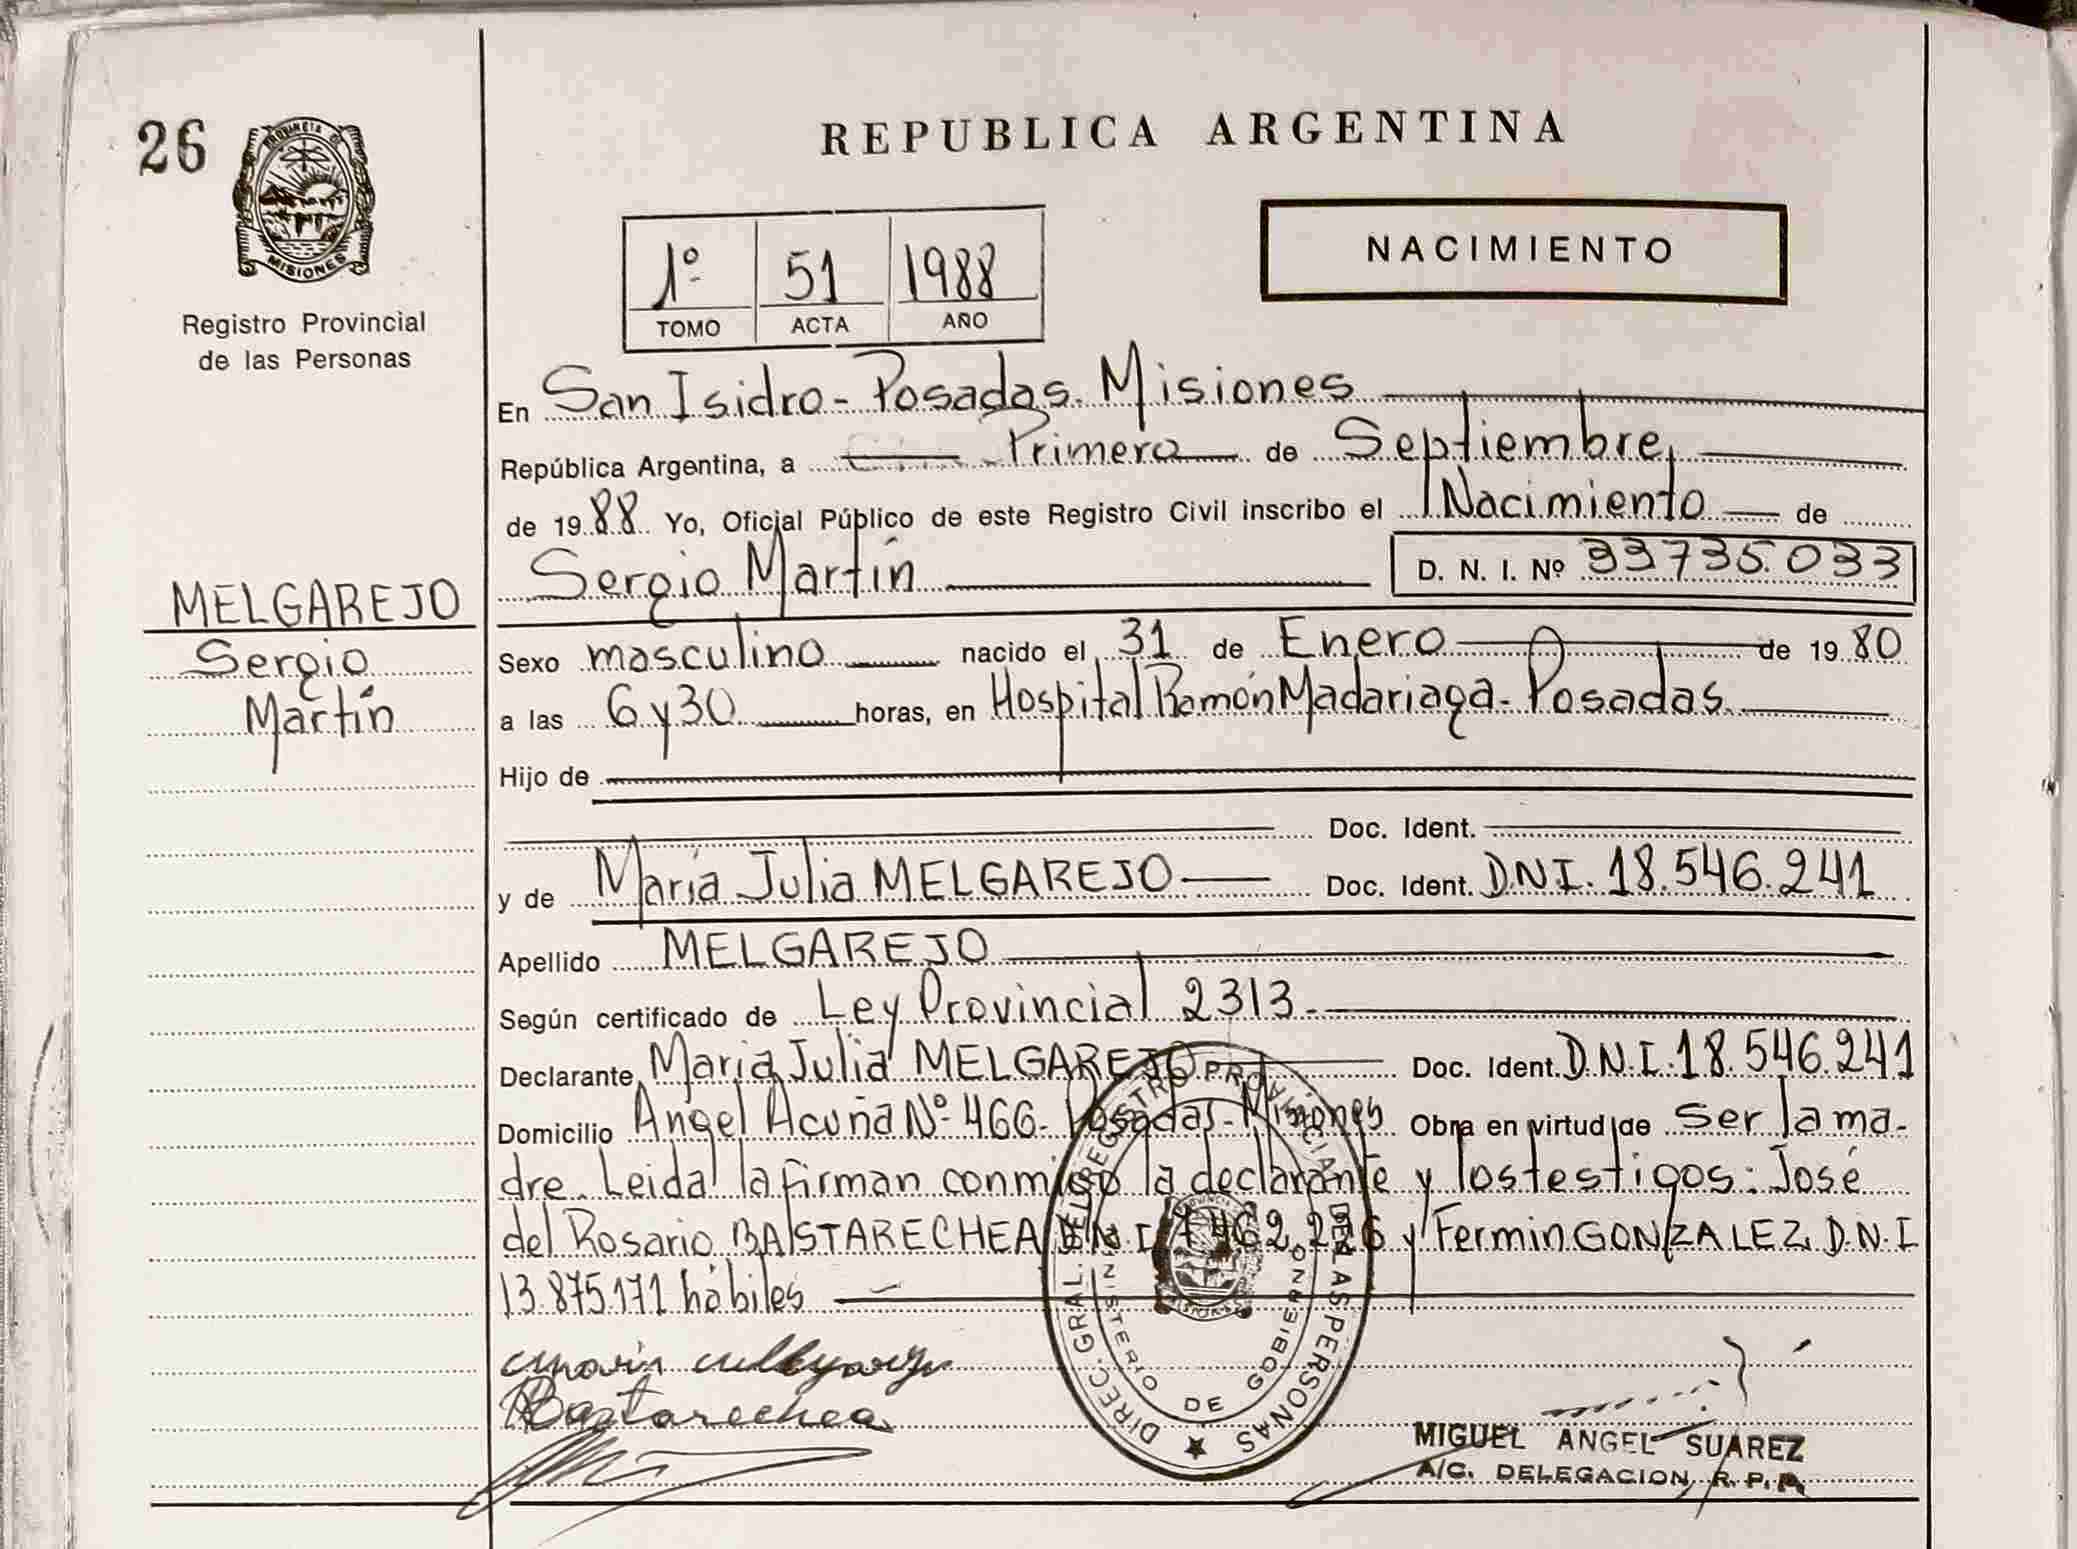 26
PROVINCIA DE
MISIONES
Registro Provincial
de las Personas
REPUBLICA ARGENTINA
1º 51 1988
TOMO ACTA AÑO
NACIMIENTO
En San Isidro - Posadas. Misiones
República Argentina, a Primero de Septiembre,
de 1988 Yo, Oficial Público de este Registro Civil inscribo el Nacimiento de
Sergio Martín D. N. I. Nº 33735.033
MELGAREJO
Sergio
Martín
Sexo masculino nacido el 31 de Enero de 1980
a las 6 y 30 horas, en Hospital Ramón Madariaga - Posadas.
Hijo de
Doc. Ident.
y de María Julia MELGAREJO Doc. Ident. DNI. 18.546.241
Apellido MELGAREJO
Según certificado de Ley Provincial 2313.
Declarante María Julia MELGAREJO Doc. Ident. D.N.I. 18.546.241
Domicilio Angel Acuña Nº 466. Posadas - Misiones Obra en virtud de ser la ma-
dre. Leida la firman conmigo la declarante y los testigos: José
del Rosario BASTARECHEA D.N.I. y Fermin GONZALEZ D.N.I
13.875.171 hábiles
Bastarechea
DIREC. GRAL. DEL REGISTRO PROVINCIAL DE LAS PERSONAS
MINISTERIO DE GOBIERNO
MIGUEL ANGEL SUAREZ
A/C. DELEGACION, R. P. P.